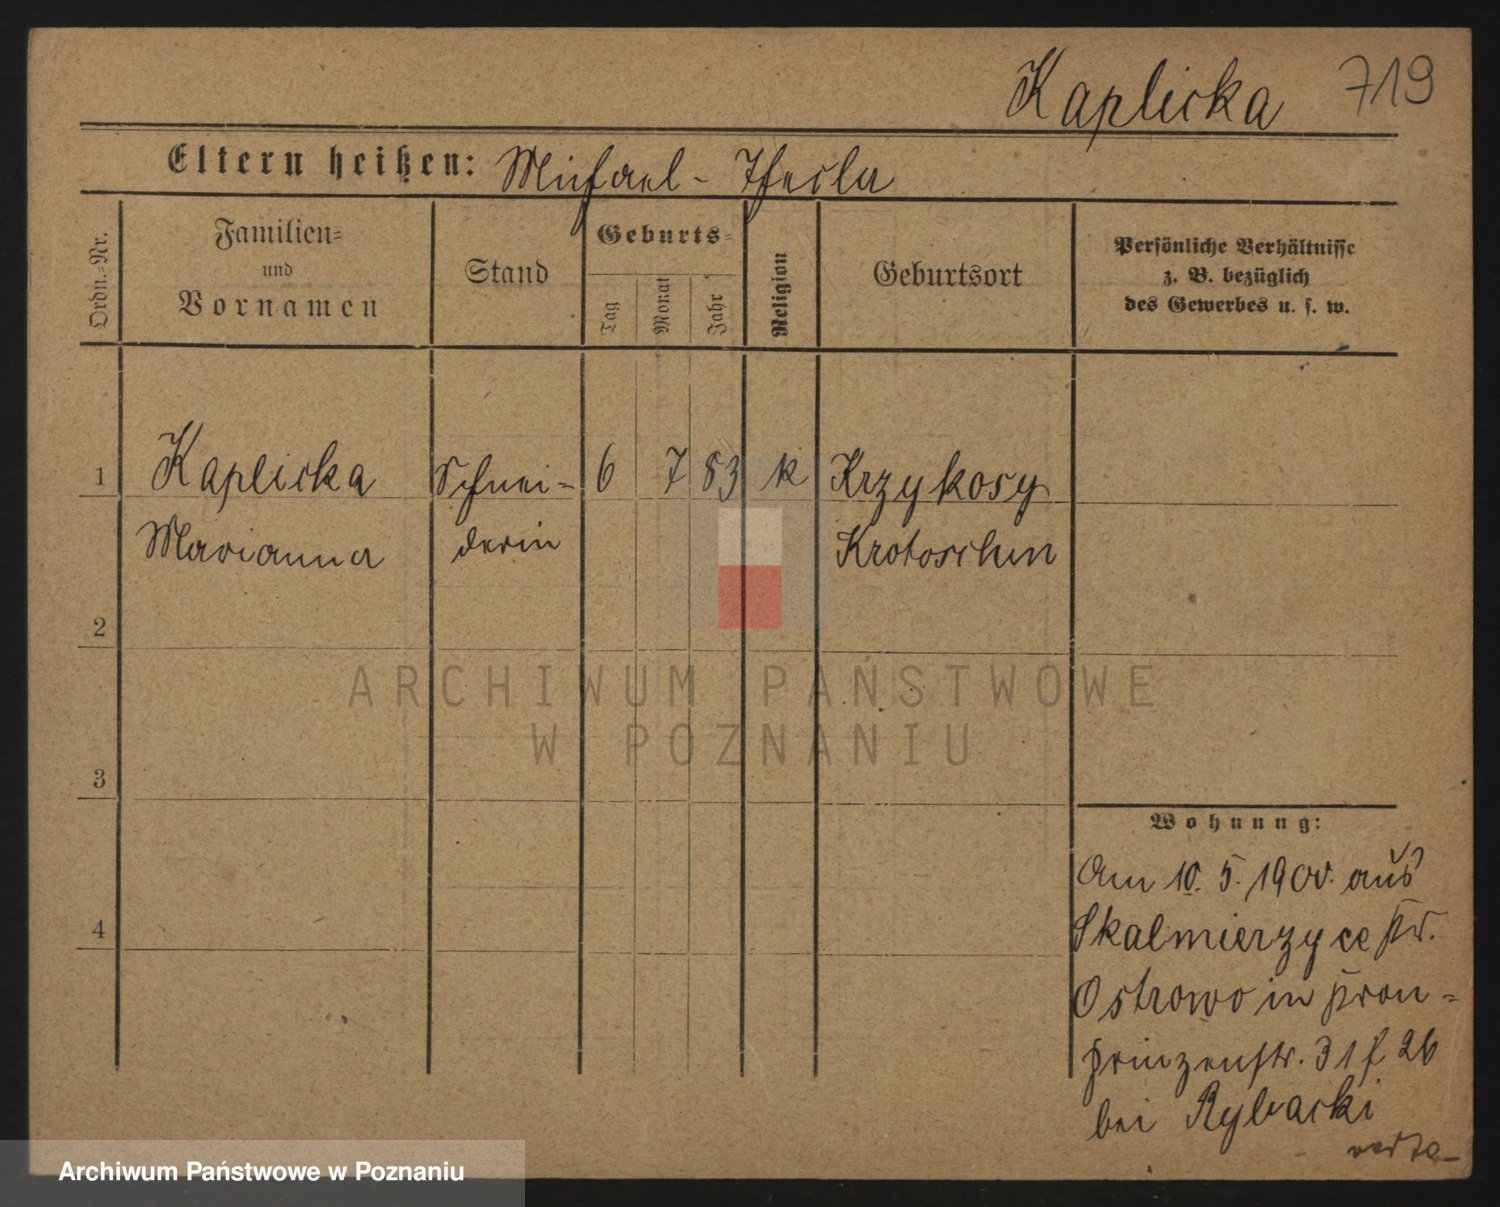 Kaplicka 719
Eltern heißen: Michael - Thecla
Ordn.=Nr.
Familien=
und
Vornamen
Stand
Geburts=
Tag
Monat
Jahr
Religion
Geburtsort
Persönliche Verhältnisse
z. B. bezüglich
des Gewerbes u. s. w.
1 Kaplicka Schnei= 6 7 83 k Krzykosy
Marianna derin Krotoschin
2
3
4
Wohnung:
Am 10. 5. 190 aus
Skalmierzyce Kr.
Ostrowo in Kron=
prinzenstr. 31 26
bei Rybacki
ARCHIWUM PAŃSTWOWE
W POZNANIU
Archiwum Państwowe w Poznaniu